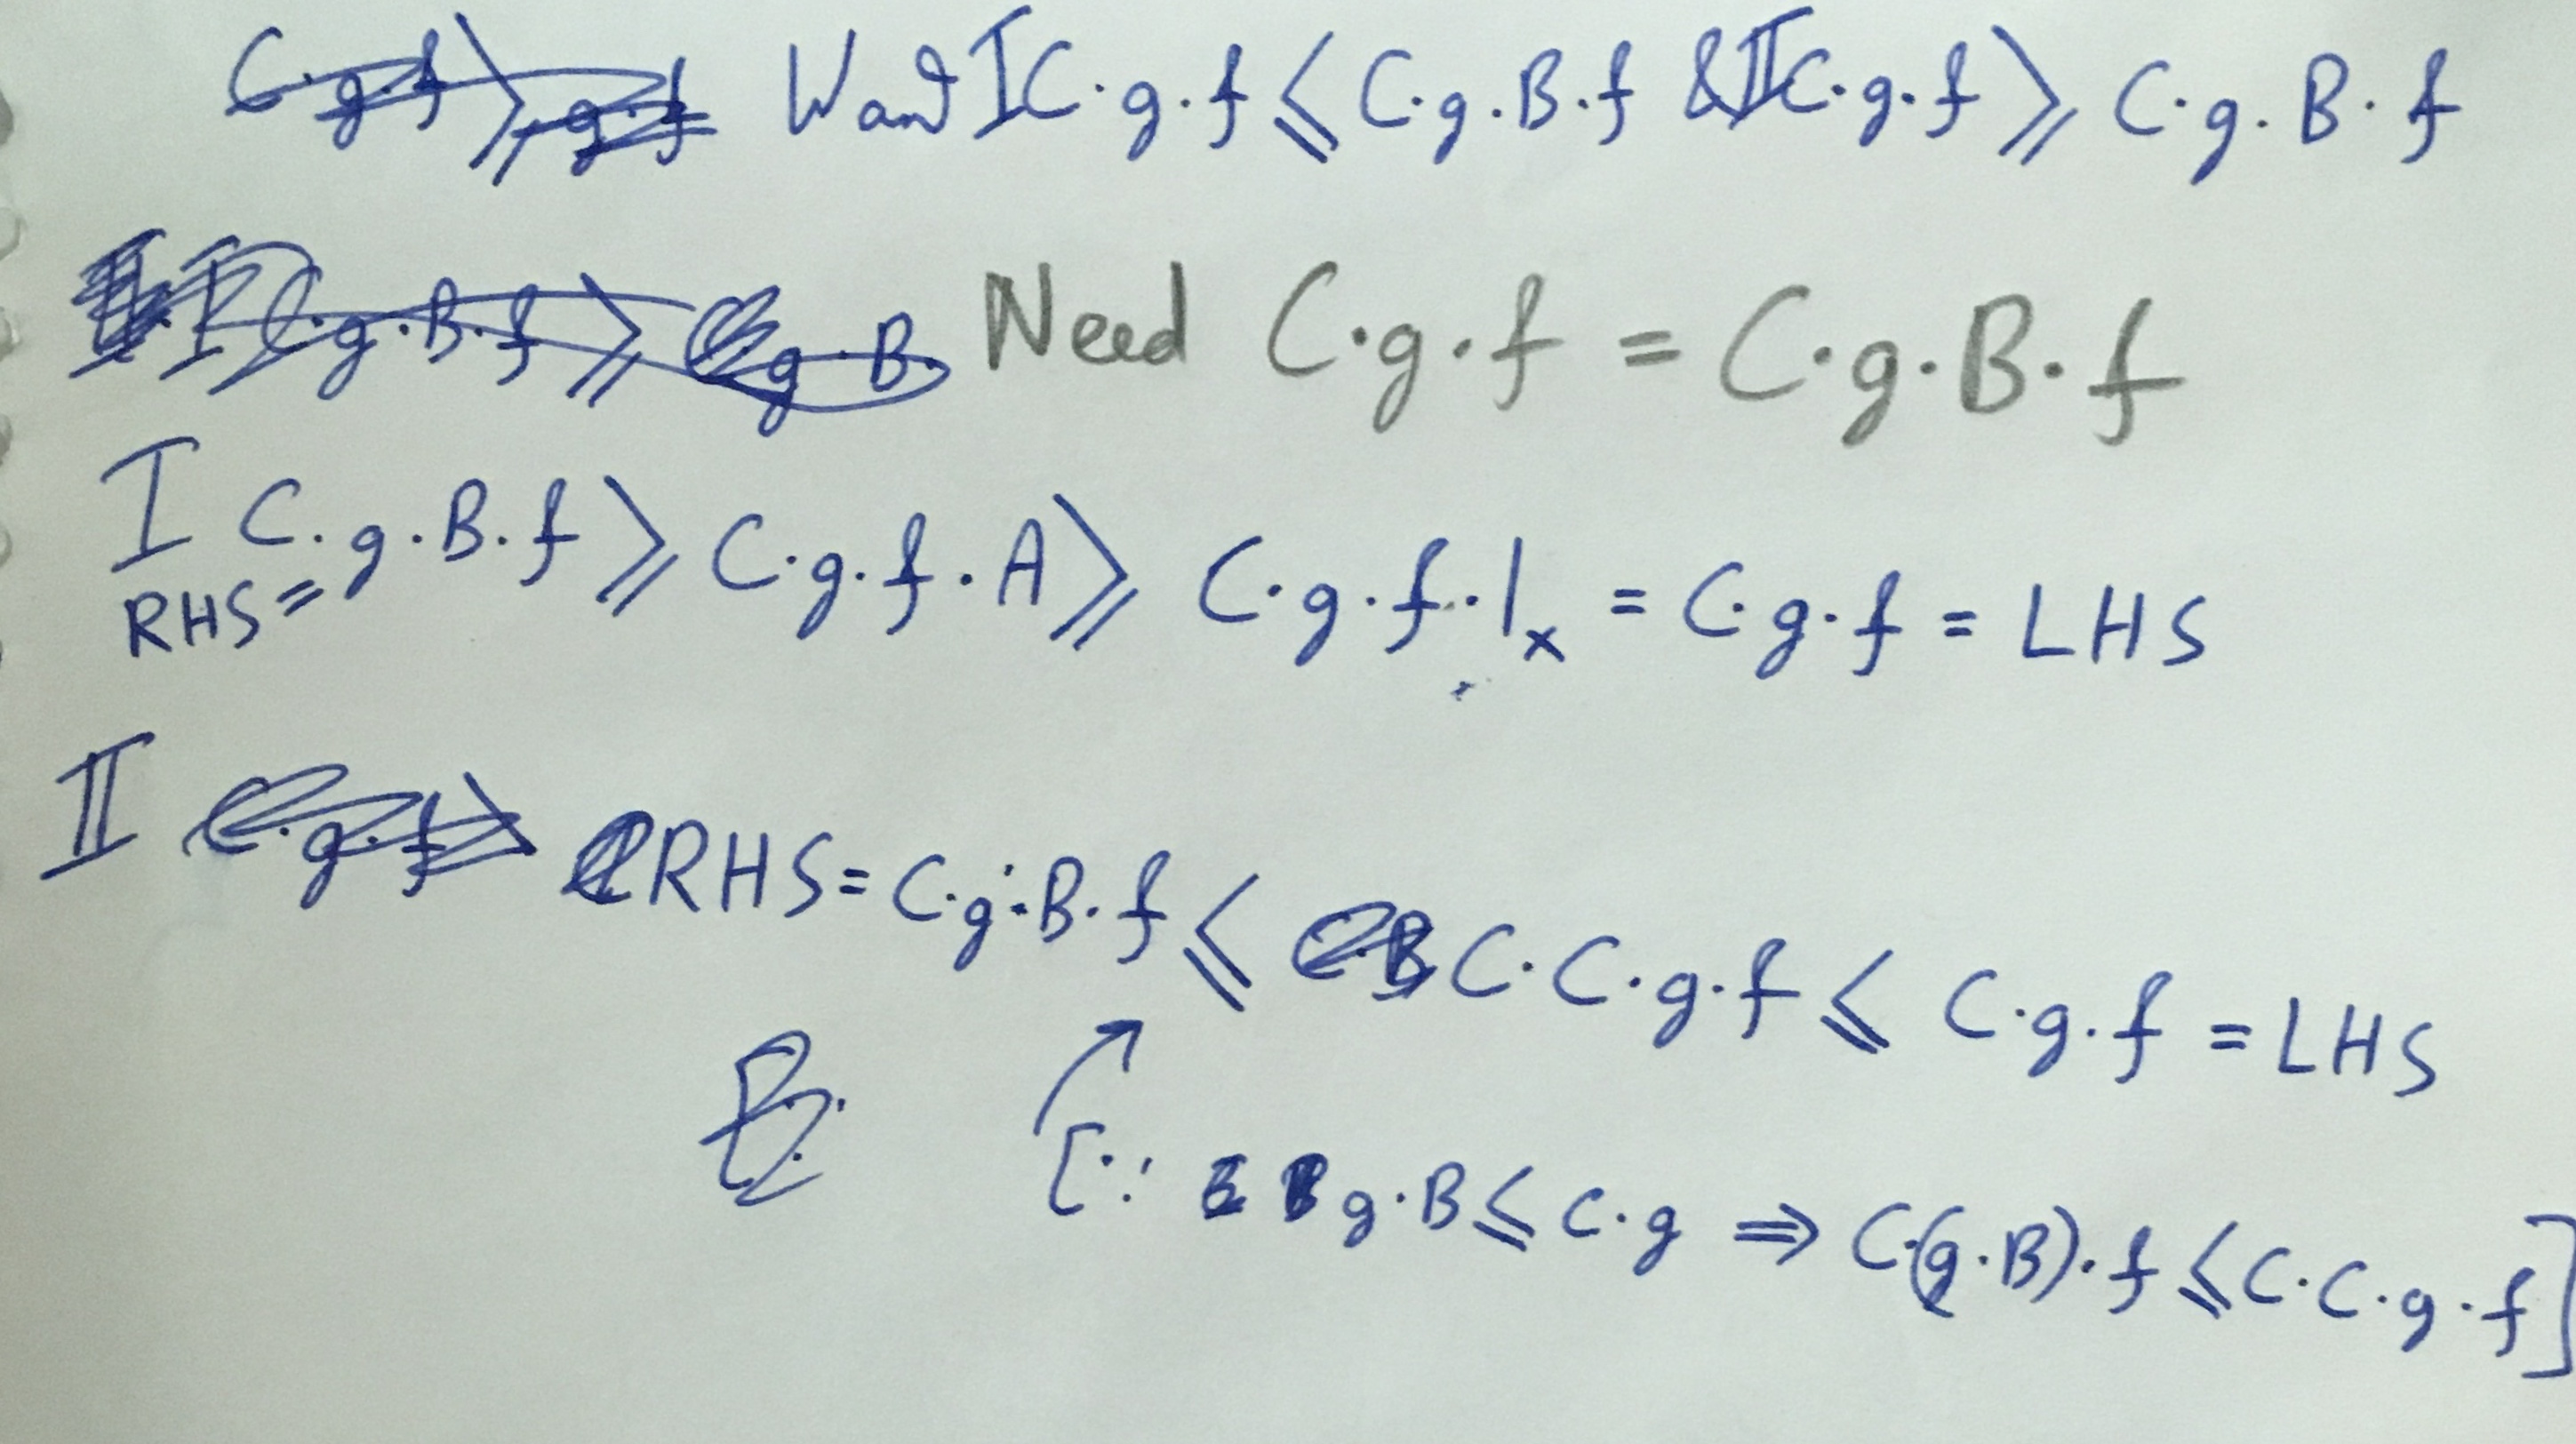 Want I C·g·f ⩽ C·g·B·f & II C·g·f ⩾ C·g·B·f
Need C·g·f = C·g·B·f
I C·g·B·f ⩾ C·g·f·A ⩾ C·g·f·1ₓ = C·g·f = LHS
RHS=
II RHS = C·g·B·f ⩽ C·C·g·f ⩽ C·g·f = LHS
[∵ g·B ⩽ C·g ⇒ C·(g·B)·f ⩽ C·C·g·f]